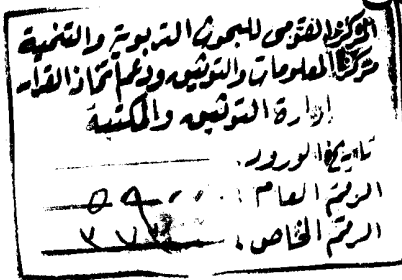 المركز القومى للبحوث التربوية والتنمية
مركز المعلومات والتوثيق ودعم اتخاذ القرار
إدارة التوثيق والمكتبة
تاريخ الورود :
الرقم العام :
الرقم الخاص :